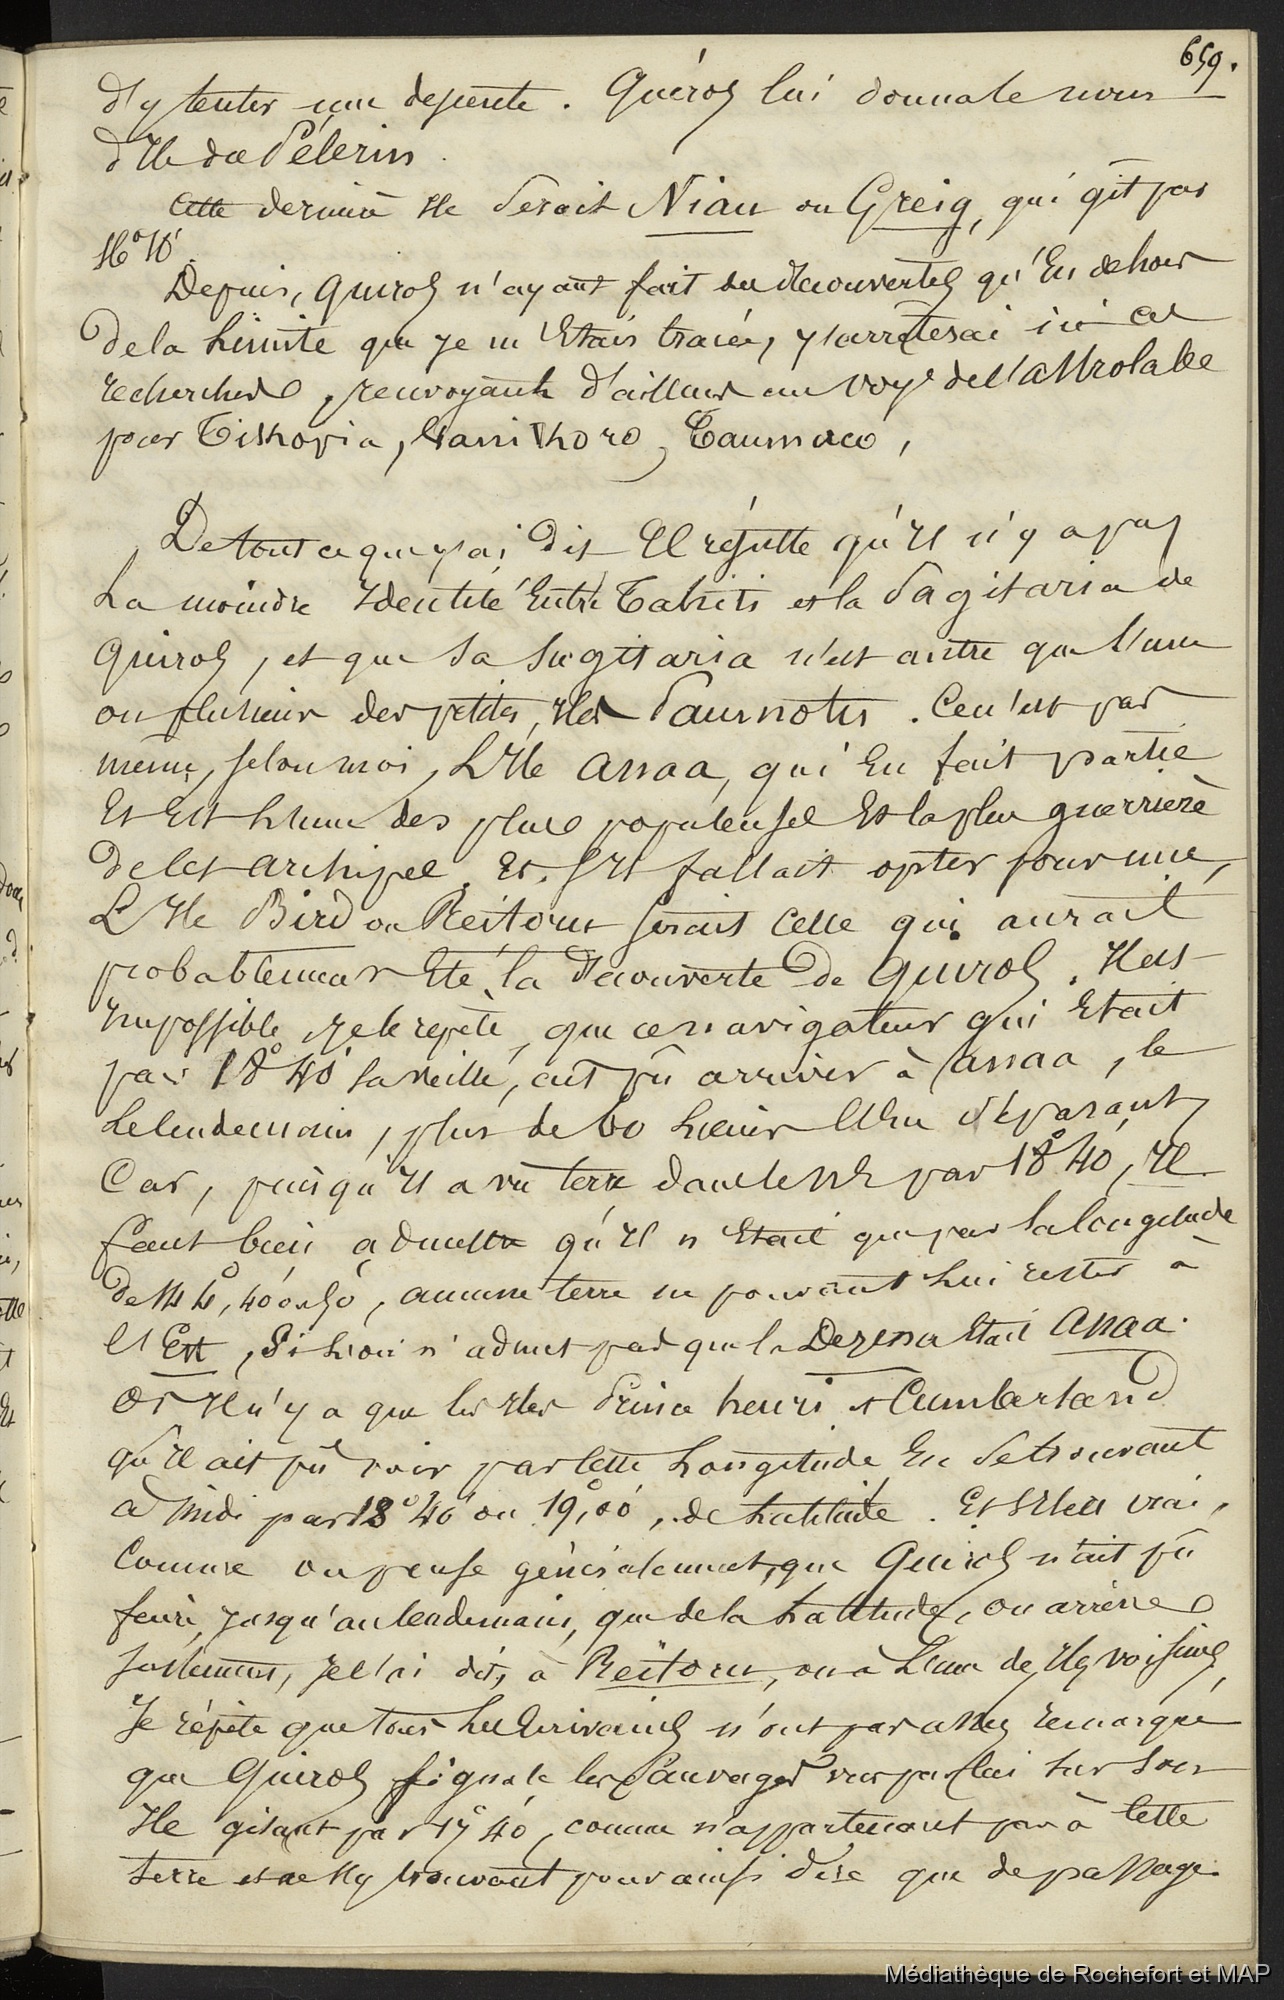 659.
d'y tenter une descente. Quiros lui donna le nom
d'Ile du Pélerin.
Cette dernière Ile serait Niau ou Greig, qui gît par
16° 10'.
Depuis, Quiros n'ayant fait des découvertes qu'En dehors
De la Limite que je m'Etais tracée, j'arrêterai ici ces
recherches, renvoyant d'ailleurs au voy.e de l'Astrolabe
pour Tikopia, Vanikoro, Taumaco,
De tout ce que j'ai dit Il résulte qu'Il n'y a pas
La moindre Identité Entre Tahiti et la Sagitaria de
Quiros, et que sa Sagitaria n'est autre que l'une
ou plusieurs des petites Iles Paumotu. Ce n'est pas
même, selon moi, L'Ile Anaa, qui En fait partie
Et Est L'une des plus populeuses Et la plus guerrière
De cet archipel. Et, s'Il fallait opter pour une,
L'Ile Bird ou Reitoru serait Celle qui aurait
probablement Eté la découverte De Quiros. Il est
Impossible, je le répète, que ce navigateur qui Etait
par 18° 40' la veille, ait pû arriver à Anaa, le
Lelendemain, plus de 60 Lieues L'En séparant,
Car, puisqu'Il a vû terre dans le par 18° 40', Il
faut bien admettre qu'Il n'Etait que par la longitude
De 144°, 40' ou 50', aucune terre ne pouvant Lui rester à
l'Est, Si L'on n'admet pas que la Dezena Etait Anaa.
Or Il n'y a que les Iles Prince henri et Cumberland
qu'Il ait pû voir par Cette Longitude En se trouvant
à Midi par 18° 40' ou 19°, 00', de Latitude. Et s'Il est vrai,
Comme on pense généralement, que Quiros n'ait pû
faire, jusqu'au lendemain, que de la Latitude, on arrive
justement, je l'ai dit, à Reitoru, ou à L'une des Iles voisines,
Je répète que tous Les Ecrivains n'ont pas assez remarqué
que Quiros signale les Sauvages vus par lui sur son
Ile gisant par 17° 40', comme n'appartenant pas à Cette
terre et ne s'y trouvant pour ainsi dire que de passage.
Médiathèque de Rochefort et MAP